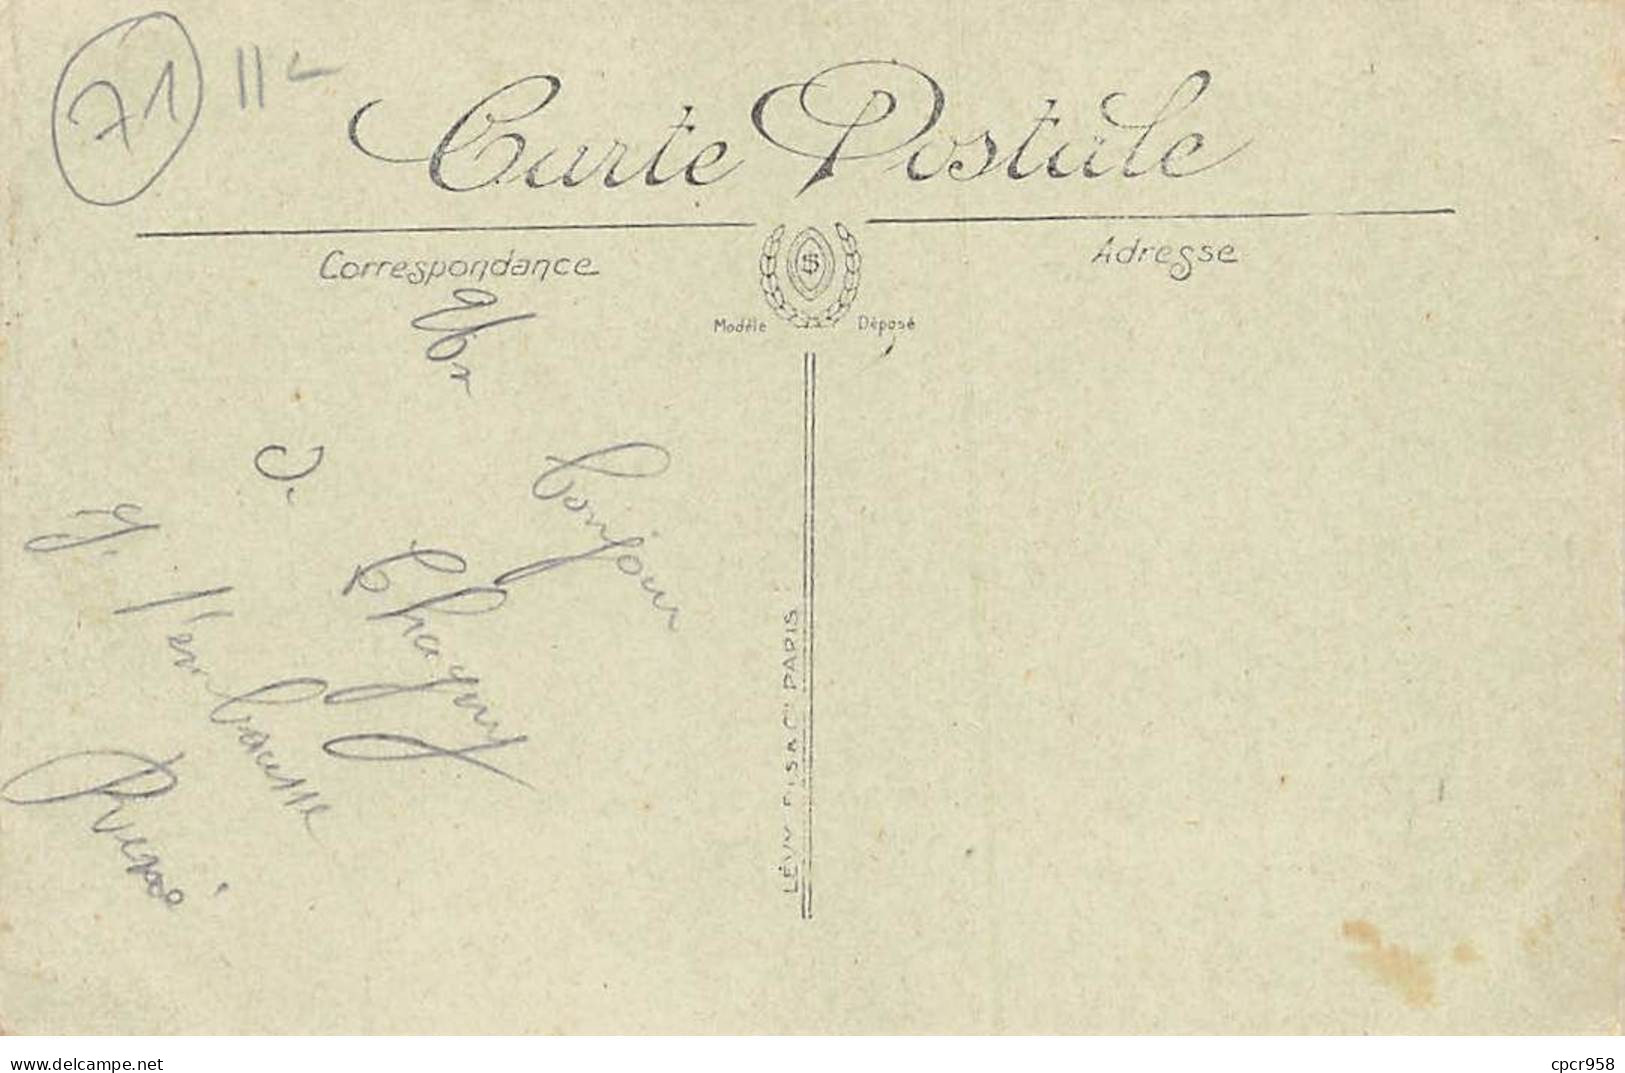 71 11
Carte Postale
Correspondance
Adresse
Modèle Déposé
LÉVY FILS & Cie PARIS
bonjour
Chagny
J. l'embrasse
René
www.delcampe.net
cpcr958